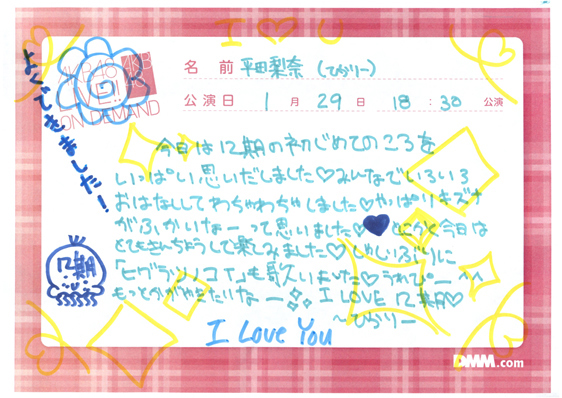 I ♡ U
よくできましたー!
AKB48 LIVE!! ON DEMAND
名 前 平田梨奈 (ひらりー)
公演日 1月 29日 18:30 公演
今日は12期の初じめてのころを
いっぱい思いだしました♡みんなでいろいろ
おはなしして わちゃわちゃしました♡やっぱりキズナ
がふかいなーって思いました♥とにかく今日は
とてもきんちょうして楽しみました♡ひさしぶりに
「ヒグラシノコイ」も歌いました♡うれぴー^^
もっとかがやきたいなー I LOVE 12期♡
〜ひらりー
12期
I Love You
DMM.com